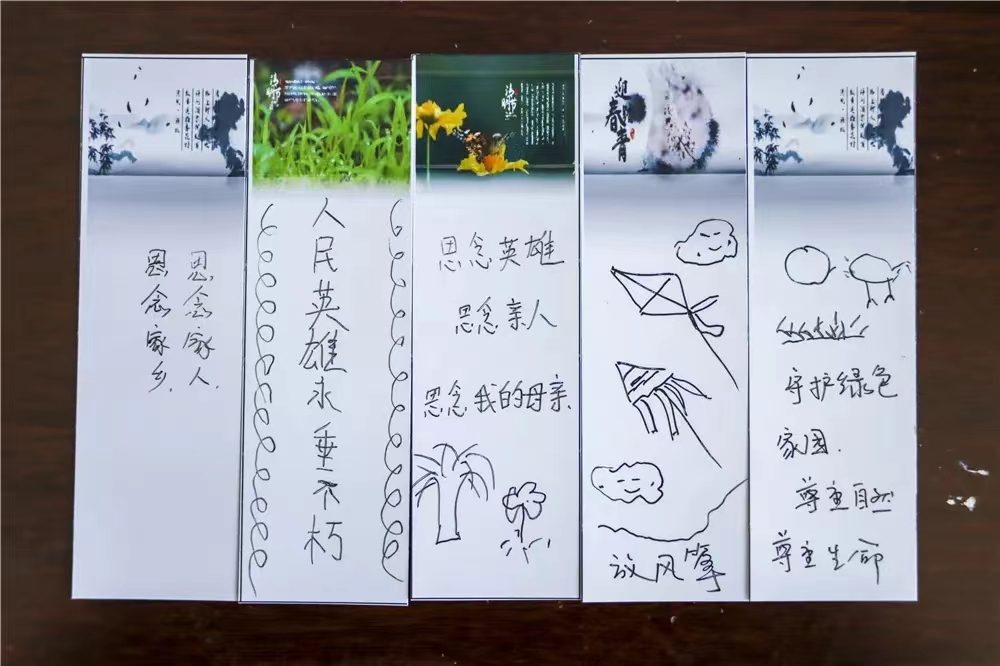 思念家人.
思念家乡.
清明
人民英雄永垂不朽
清明
思念英雄
思念亲人
思念我的母亲.
迎春青
放风筝
守护绿色
家园.
尊重自然
尊重生命